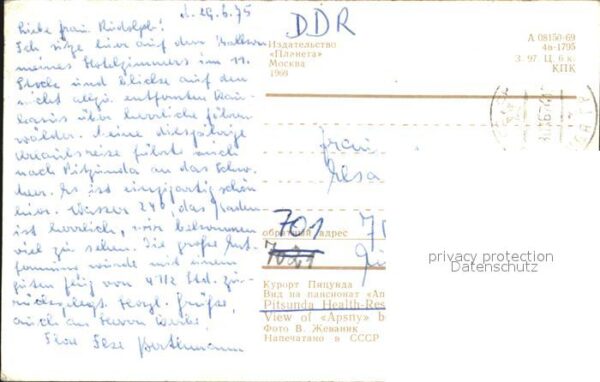 d. 29.6.75
Liebe Frau Rudolph!
Ich sitze hier auf dem Balkon
meines Hotelzimmers im 11.
Stock und blicke auf den
nicht allzu entfernten Kau-
kasus über herrliche
wälder. Meine diesjährige
Urlaubsreise führt mich
nach Pitzunda an das Schw.
Meer. Es ist einzigartig schön
hier. Wasser 24°, das Baden
ist herrlich, wir bekommen
viel zu sehen. Die große Ent-
fernung wurde mit einem
guten Flug von 4 1/2 Std. zu-
rückgelegt. Herzl. Grüße,
auch an Herrn
Ihre Ilse
DDR
Издательство
«Планета»
Москва
1969
А 08150-69
4а-1795
З. 97. Ц. 6 к.
КПК
Frau
701
обратный адрес
7021
privacy protection
Datenschutz
Курорт Пицунда
Вид на пансионат «Ап
Pitsunda Health-Res
View of «Apsny» b
Фото В. Жеваник
Напечатано в СССР